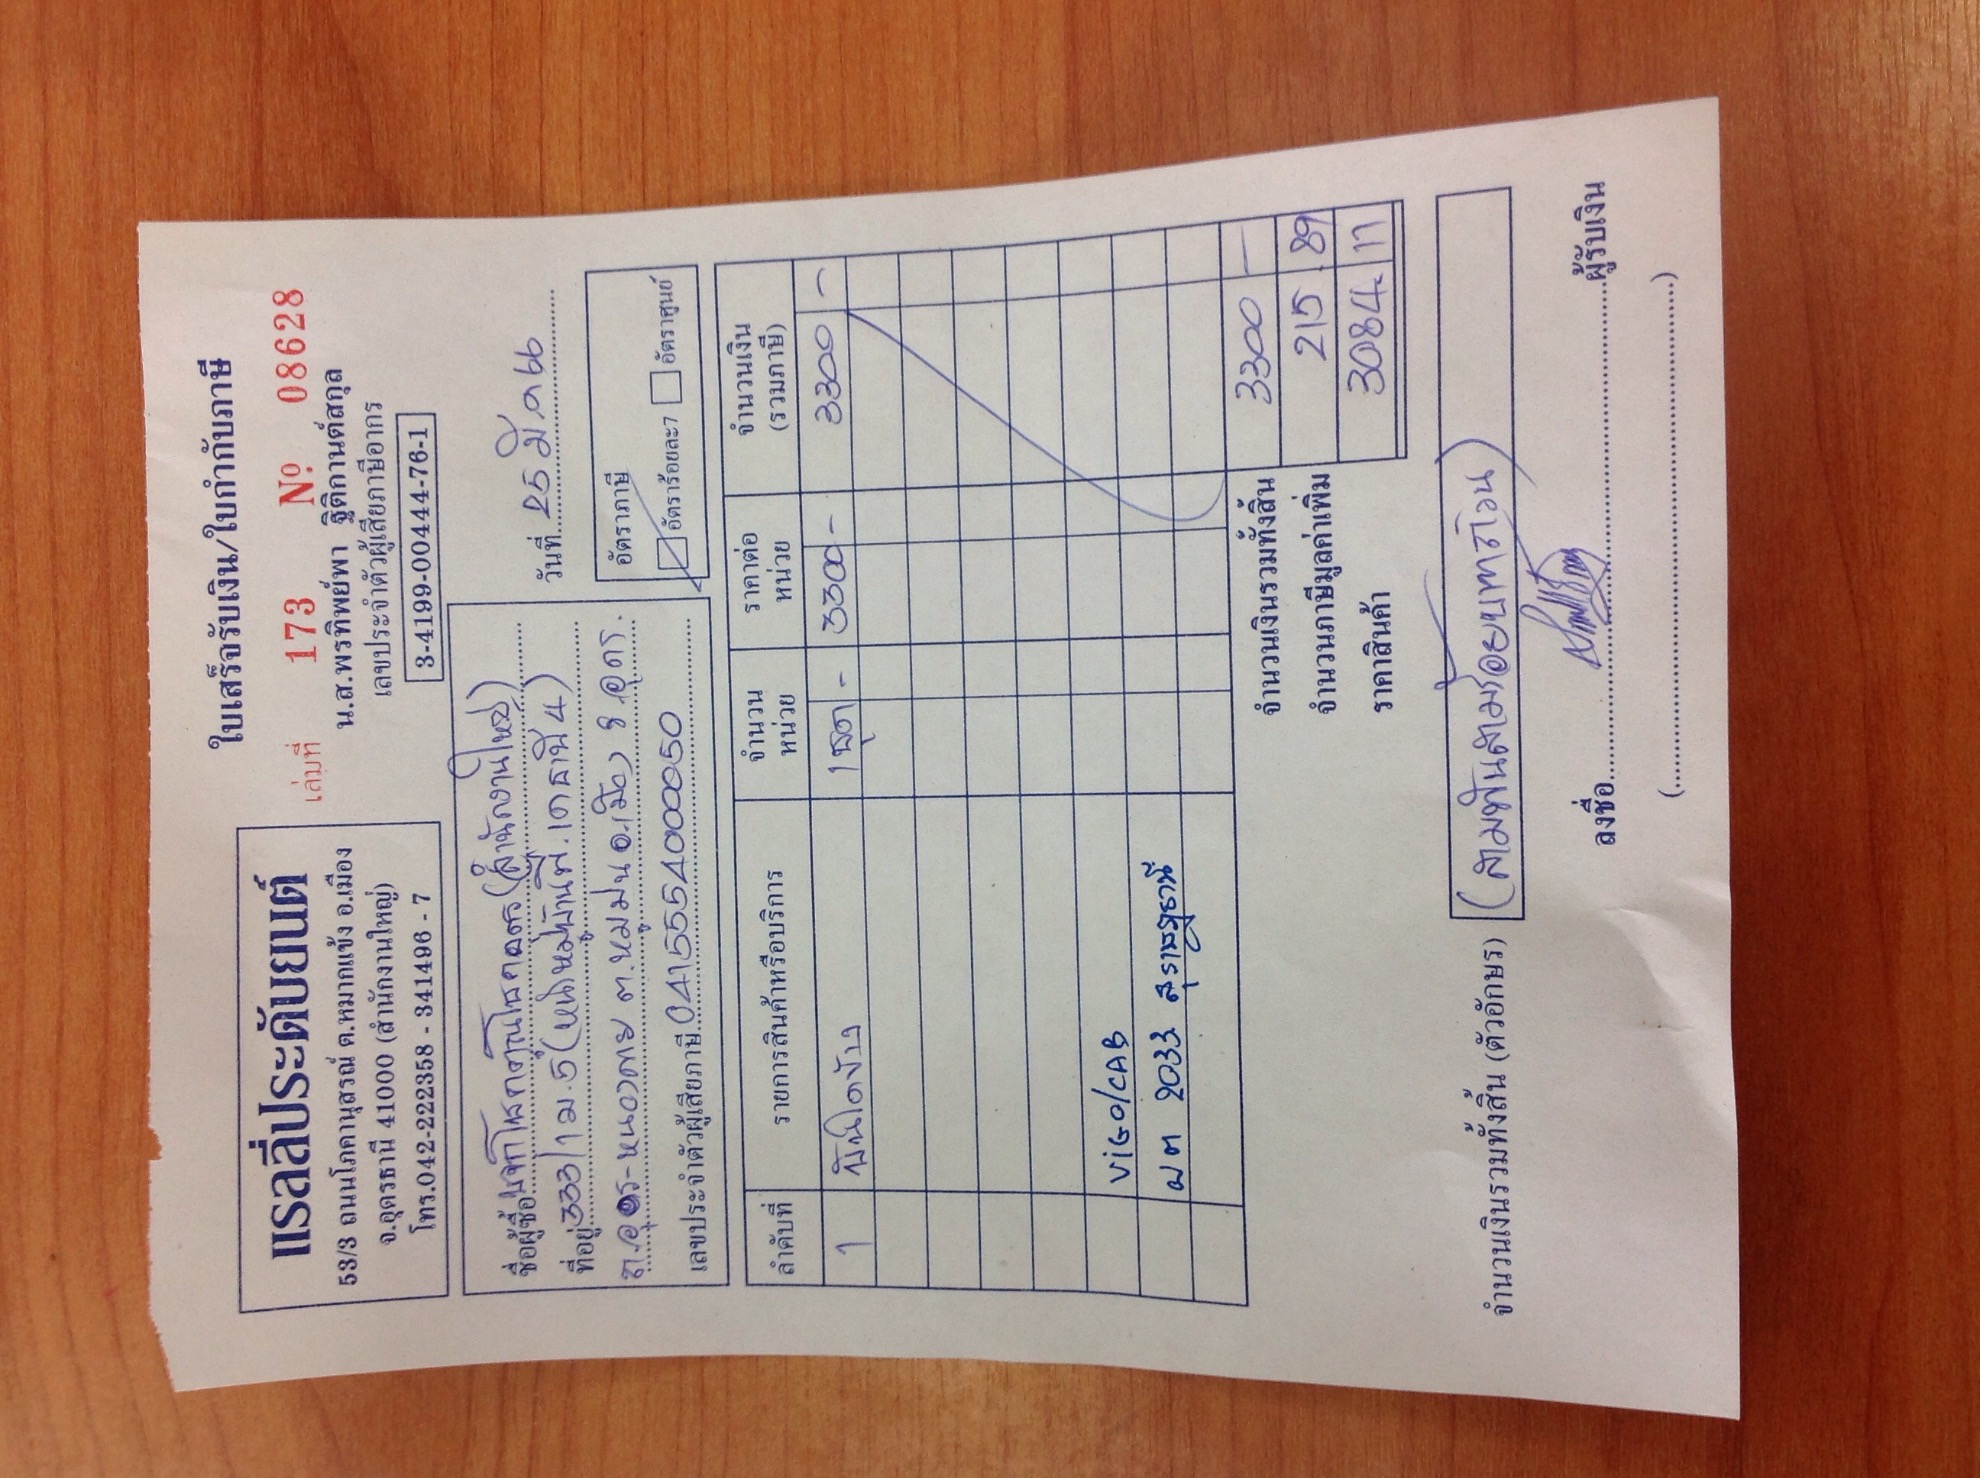 ใบเสร็จรับเงิน/ใบกำกับภาษี
แรลลี่ประดับยนต์
53/3 ถนนโภคานุสรณ์ ต.หมากแข้ง อ.เมือง
จ.อุดรธานี 41000 (สำนักงานใหญ่)
โทร.042-222358 - 341496 - 7
เล่มที่ 173 Nº 08628
น.ส.พรทิพย์พา ฐิติกานต์สกุล
เลขประจำตัวผู้เสียภาษีอากร
3-4199-00444-76-1
วันที่ 25 มี.ค 66
ชื่อผู้ซื้อ (สำนักงานใหญ่)
ที่อยู่ 333/1 ม.5 (หมู่บ้าน 4)
ถ.อุดร-หนองคาย ต.หมูม่น อ.เมือง จ.อุดร.
เลขประจำตัวผู้เสียภาษี 0415554000050
อัตราภาษี
อัตราร้อยละ7 อัตราศูนย์
ลำดับที่ รายการสินค้าหรือบริการ จำนวนหน่วย ราคาต่อหน่วย จำนวนเงิน (รวมภาษี)
1 บันไดข้าง 1ชุด - 3300 - 3300 -
ViGO/CAB
ผต 2033 สุราษฎร์ธานี
จำนวนเงินรวมทั้งสิ้น 3300 -
จำนวนภาษีมูลค่าเพิ่ม 215.89
ราคาสินค้า 3084.11
จำนวนเงินรวมทั้งสิ้น (ตัวอักษร) (สามพันสามร้อยบาทถ้วน)
ลงชื่อ ผู้รับเงิน